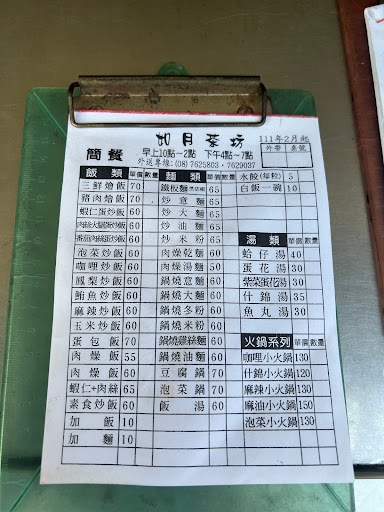 如月菜坊
111年2月起
簡餐
早上10點~2點 下午4點~7點
外送專線:(08)7625803・7629037
外帶 桌號
飯類 單價 數量
三鮮燴飯 70
豬肉燴飯 70
蝦仁蛋炒飯 60
肉絲火腿蛋炒飯 60
蕃茄肉絲蛋炒飯 60
泡菜炒飯 60
咖哩炒飯 60
鳳梨炒飯 60
鮪魚炒飯 60
麻辣炒飯 60
玉米炒飯 60
蛋包飯 70
肉燥飯 55
肉燥飯 60
蝦仁+肉絲 65
素食炒飯 60
加飯 10
加麵 10
麵類 單價 數量
鐵板麵 65
炒意麵 65
炒大麵 65
炒油麵 65
炒米粉 65
肉燥乾麵 60
肉燥湯麵 50
鍋燒意麵 60
鍋燒大麵 60
鍋燒冬粉 60
鍋燒米粉 60
鍋燒雞絲麵 60
鍋燒油麵 60
豆腐鍋 70
泡菜鍋 70
飯湯 60
水餃(每粒) 5
白飯一碗 10
湯類 單價 數量
蛤仔湯 40
蛋花湯 30
紫菜蛋花湯 30
什錦湯 35
魚丸湯 30
火鍋系列 單價 數量
咖哩小火鍋 130
什錦小火鍋 120
麻辣小火鍋 130
麻油小火鍋 150
泡菜小火鍋 130